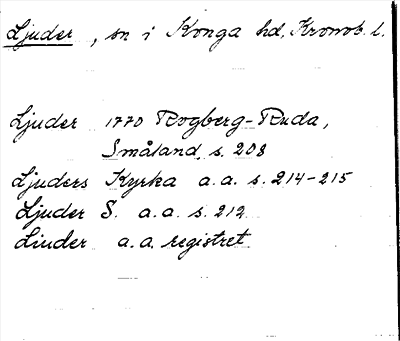 Ljuder, sn i Konga hd, Kronob. l.
Ljuder 1770 Rogberg-Ruda,
Småland, s. 208
Ljuders Kyrka a.a. s. 214-215
Ljuder S. a.a. s. 212
Liuder a.a. registret